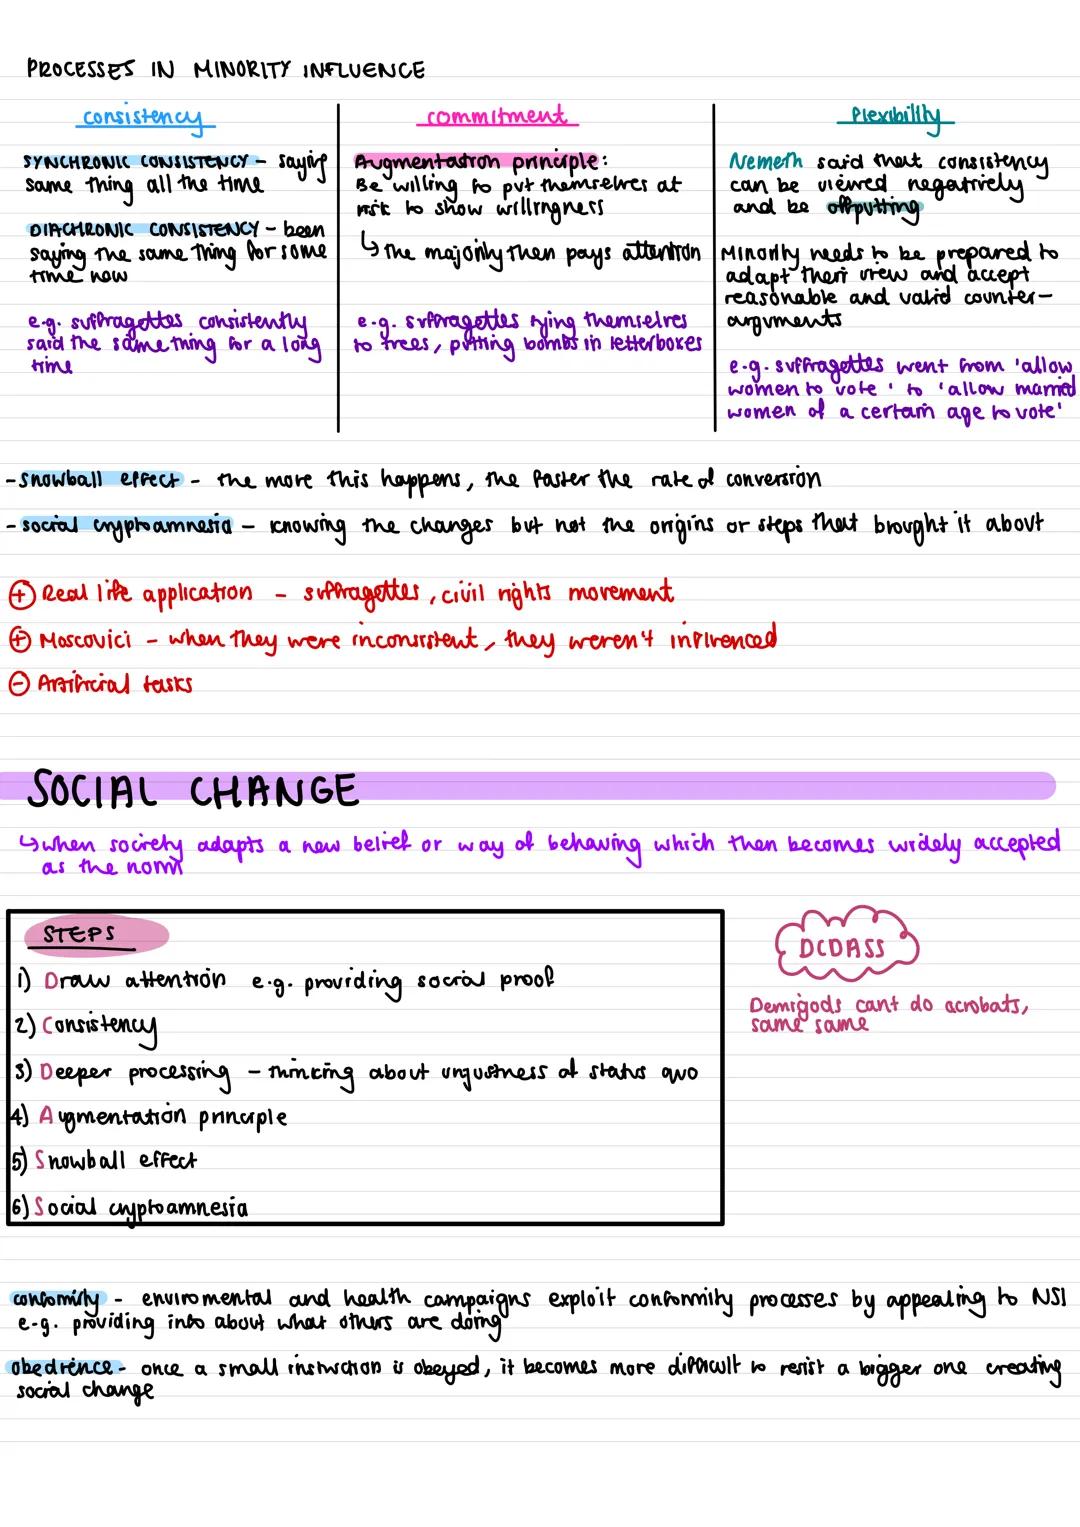 PROCESSES IN MINORITY INFLUENCE
consistency
SYNCHRONIC CONSISTENCY - saying
same thing all the time
DIACHRONIC CONSISTENCY - been
saying the same thing for some
time now
e.g. suffragettes consistently
said the same thing for a long
time
commitment
Augmentation principle:
Be willing to put themselves at
risk to show willingness
↳ the majority then pays attention
e.g. suffragettes tying themselves
to trees, putting bombs in letterboxes
Flexibility
Nemeth said that consistency
can be viewed negatively
and be offputting
Minority needs to be prepared to
adapt their view and accept
reasonable and valid counter-
arguments
e.g. suffragettes went from 'allow
women to vote' to 'allow married
women of a certain age to vote'
- snowball effect - the more this happens, the faster the rate of conversion
- social cryptoamnesia - knowing the changes but not the origins or steps that brought it about
+ Real life application - suffragettes, civil rights movement
+ Moscovici - when they were inconsistent, they weren't influenced
- Artificial tasks
SOCIAL CHANGE
↳ when society adapts a new belief or way of behaving which then becomes widely accepted
as the norm
STEPS
1) Draw attention e.g. providing social proof
2) Consistency
3) Deeper processing - thinking about unjustness of status quo
4) Augmentation principle
5) Snowball effect
6) Social cryptoamnesia
DCDASS
Demigods cant do acrobats,
same same
conformity - enviromental and health campaigns exploit conformity processes by appealing to NSI
e.g. providing info about what others are doing
obedience - once a small instruction is obeyed, it becomes more difficult to resist a bigger one creating
social change